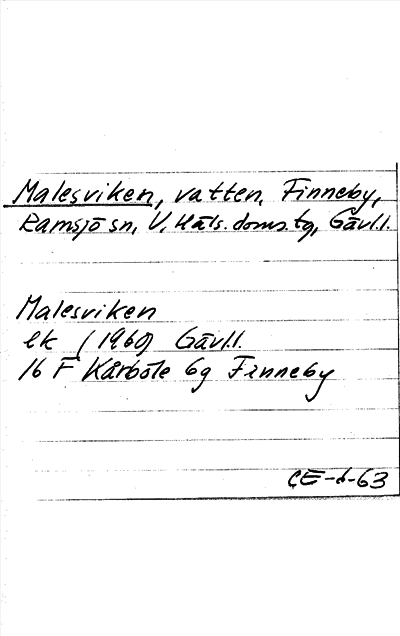 Malesviken, vatten, Finneby,
Ramsjö sn, V. Häls. doms.tg, Gävl.l.
Malesviken
ek (1960) Gävl.l.
16 F Kårböle 6g Finneby
CE-6-63